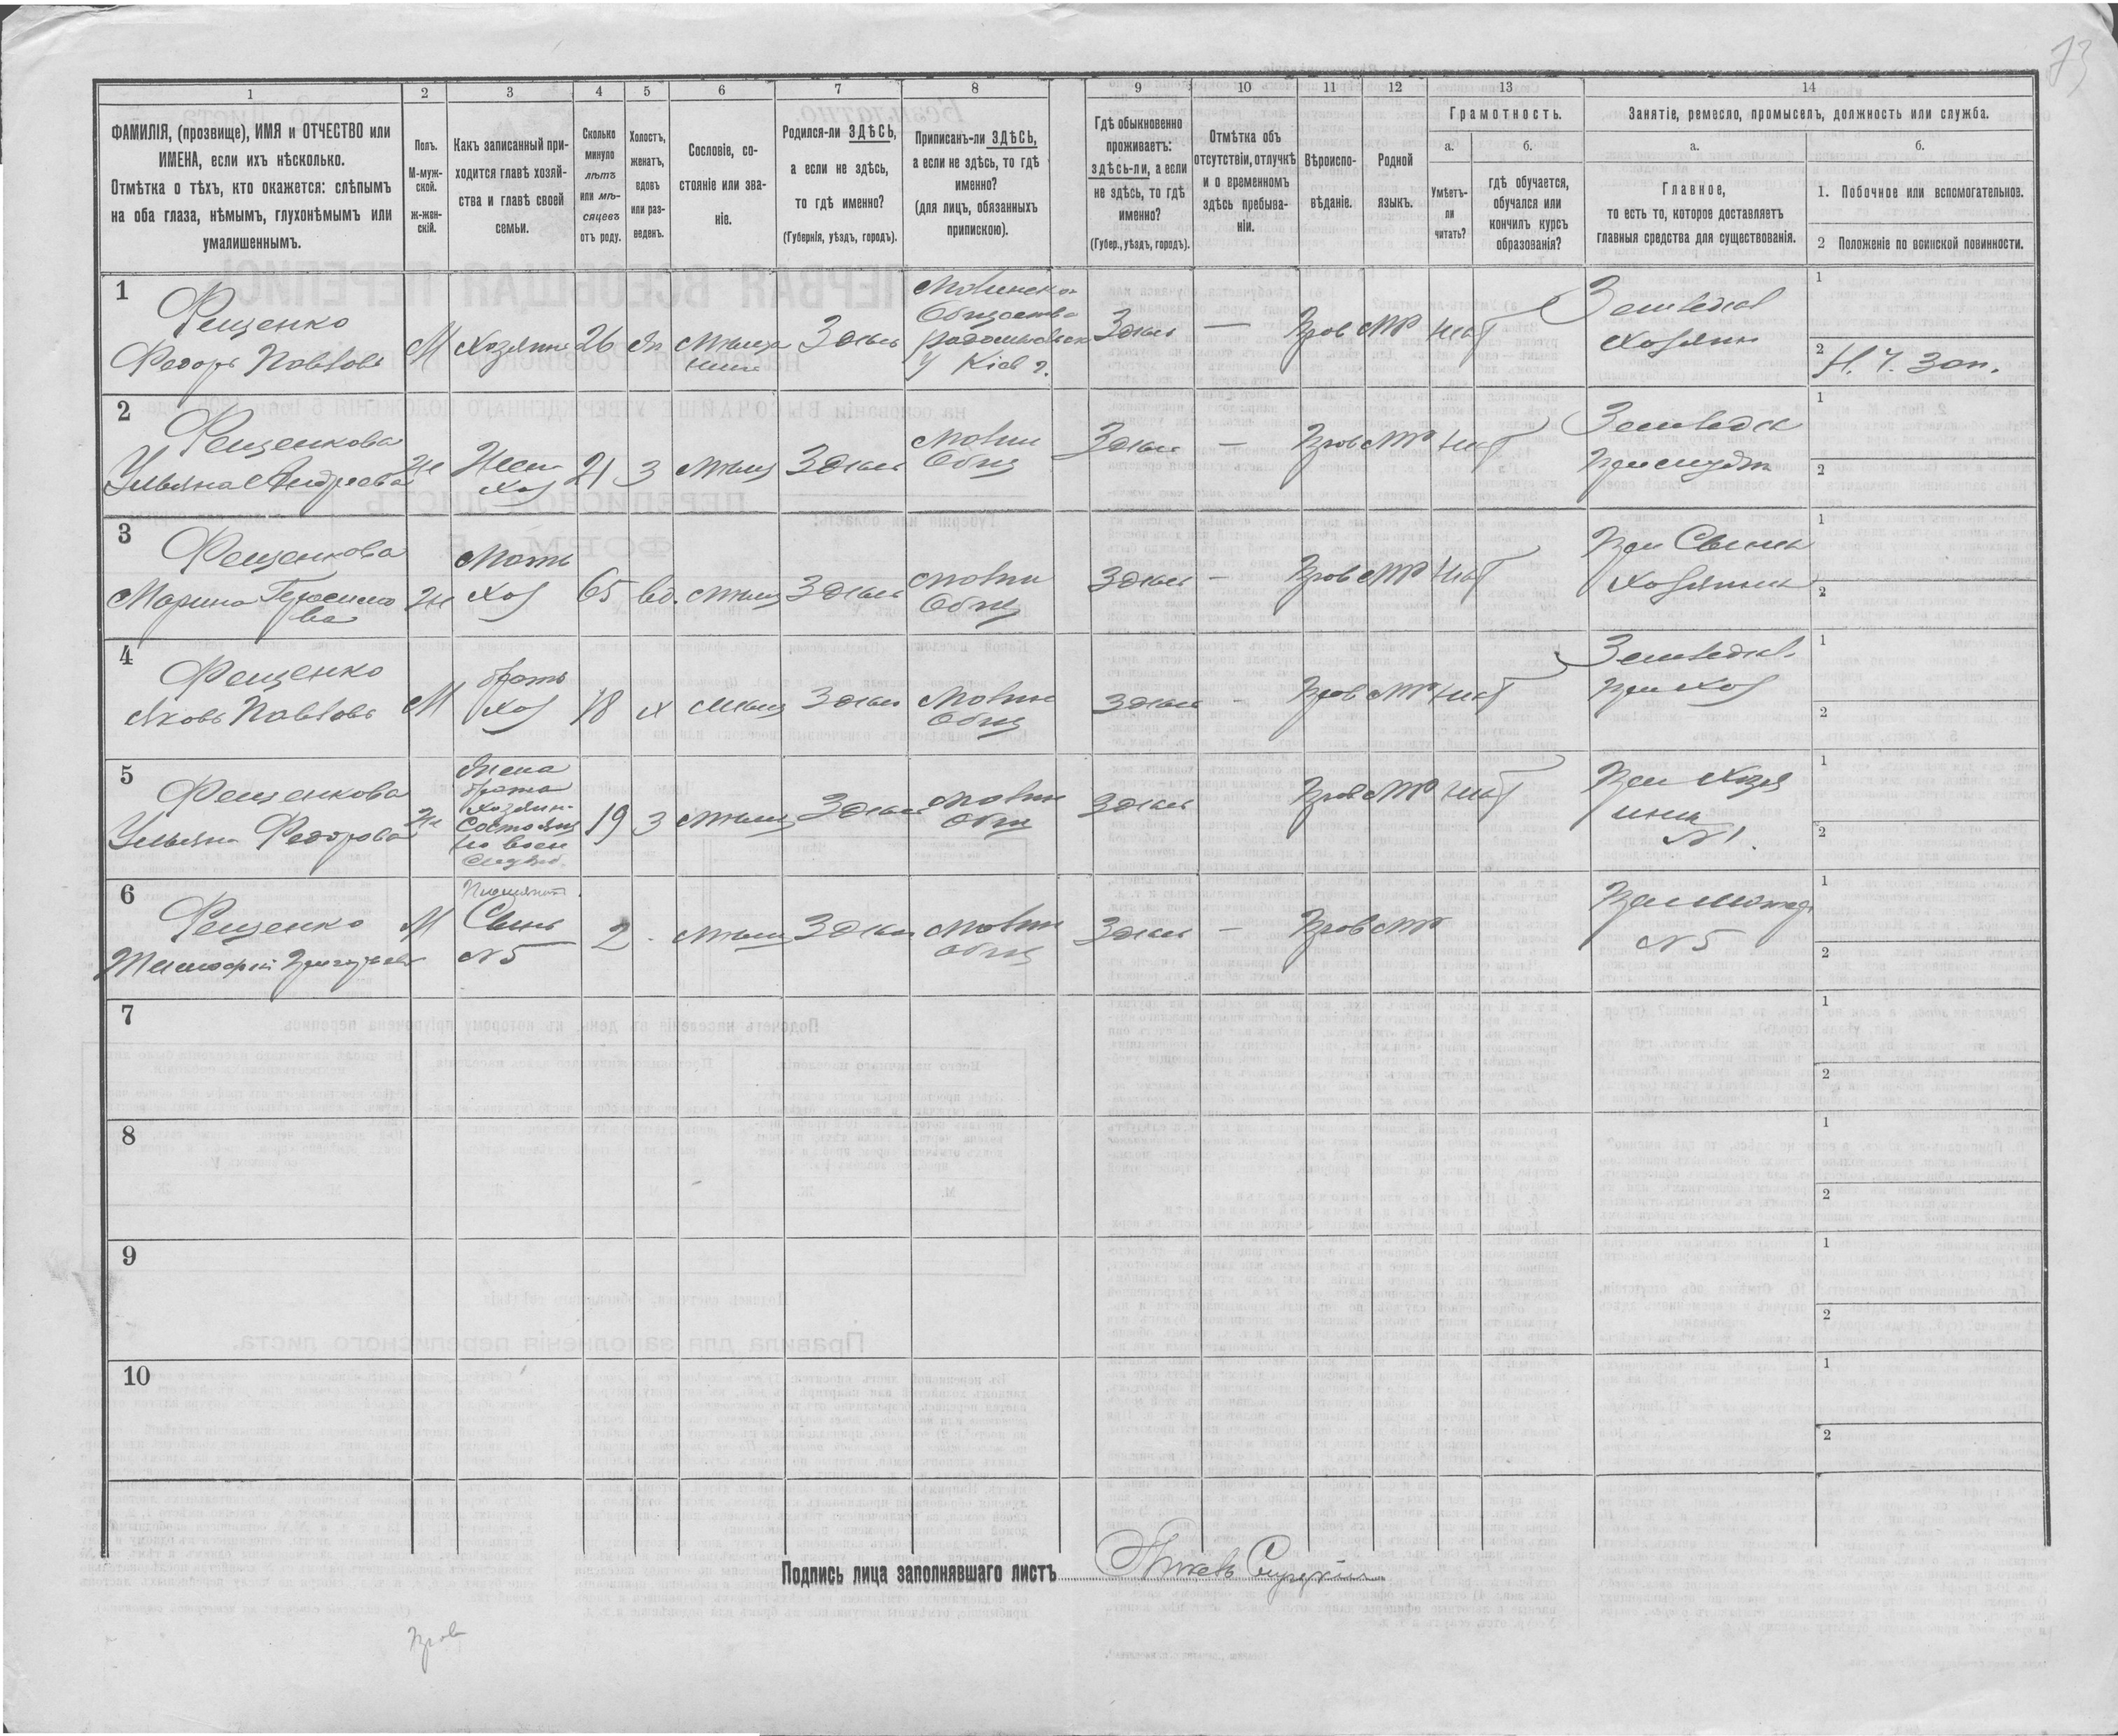 73
1 2 3 4 5 6 7 8 9 10 11 12 13 14
ФАМИЛІЯ, (прозвище), ИМЯ и ОТЧЕСТВО или
ИМЕНА, если ихъ нѣсколько.
Отмѣтка о тѣхъ, кто окажется: слѣпымъ
на оба глаза, нѣмымъ, глухонѣмымъ или
умалишеннымъ.
Полъ.
М-муж-
ской.
ж-жен-
скій.
Какъ записанный при-
ходится главѣ хозяй-
ства и главѣ своей
семьи.
Сколько
минуло
лѣтъ
или мѣ-
сяцевъ
отъ роду.
Холостъ,
женатъ,
вдовъ
или раз-
веденъ.
Сословіе, со-
стояніе или зва-
ніе.
Родился-ли ЗДѢСЬ,
а если не здѣсь,
то гдѣ именно?
(Губернія, уѣздъ, городъ).
Приписанъ-ли ЗДѢСЬ,
а если не здѣсь, то гдѣ
именно?
(для лицъ, обязанныхъ
припискою).
Гдѣ обыкновенно
проживаетъ:
здѣсь-ли, а если
не здѣсь, то гдѣ
именно?
(Губер., уѣздъ, городъ).
Отмѣтка объ
отсутствіи, отлучкѣ
и о временномъ
здѣсь пребыва-
ніи.
Вѣроиспо-
вѣданіе.
Родной
языкъ.
Грамотность.
а.
Умѣетъ-
ли
читать?
б.
гдѣ обучается,
обучался или
кончилъ курсъ
образованія?
Занятіе, ремесло, промыселъ, должность или служба.
а.
Главное,
то есть то, которое доставляетъ
главныя средства для существованія.
б.
1. Побочное или вспомогательное.
2 Положеніе по воинской повинности.
1
Фещенко
Федоръ Павловъ
М Хозяинъ 26 Здѣсь
Общества
У Кіев г.
Здѣсь — Прав МР нѣт
Земледѣл
хозяин
1
2 Н. Ч. Зап.
2
Фещенкова
Ульяна Андреева
Ж Жен
хоз
21 З Мѣщ Здѣсь
Общ
Здѣсь — Прав МР нѣт
Земледѣл
1
2
3
Фещенкова
Марина Герасимо
ва
Ж Мать
хоз
65 вд. Мѣщ Здѣсь
Общ
Здѣсь — Прав МР нѣт
При Сынѣ
хозяинѣ
1
2
4
Фещенко
Яковъ Павловъ
М братъ
хоз
18 х Мѣщ Здѣсь
Общ
Здѣсь - Прав МР нѣт
Земледѣл.
при хоз
1
2
5
Фещенкова
Ульяна Федорова
Ж Жена
брата
хозяин.
19 З Мѣщ Здѣсь
Общ
Здѣсь Прав МР нѣт
При хозя
инѣ
№1.
1
2
6
Фещенко
Тимофей Григорьев
М Племянник
Сынъ
№5
2 - Мѣщ Здѣсь
Общ
Здѣсь — Прав МР
При матер
№5
1
2
7
1
2
8
1
2
9
1
2
10
1
2
Подпись лица заполнявшаго листъ
Прав